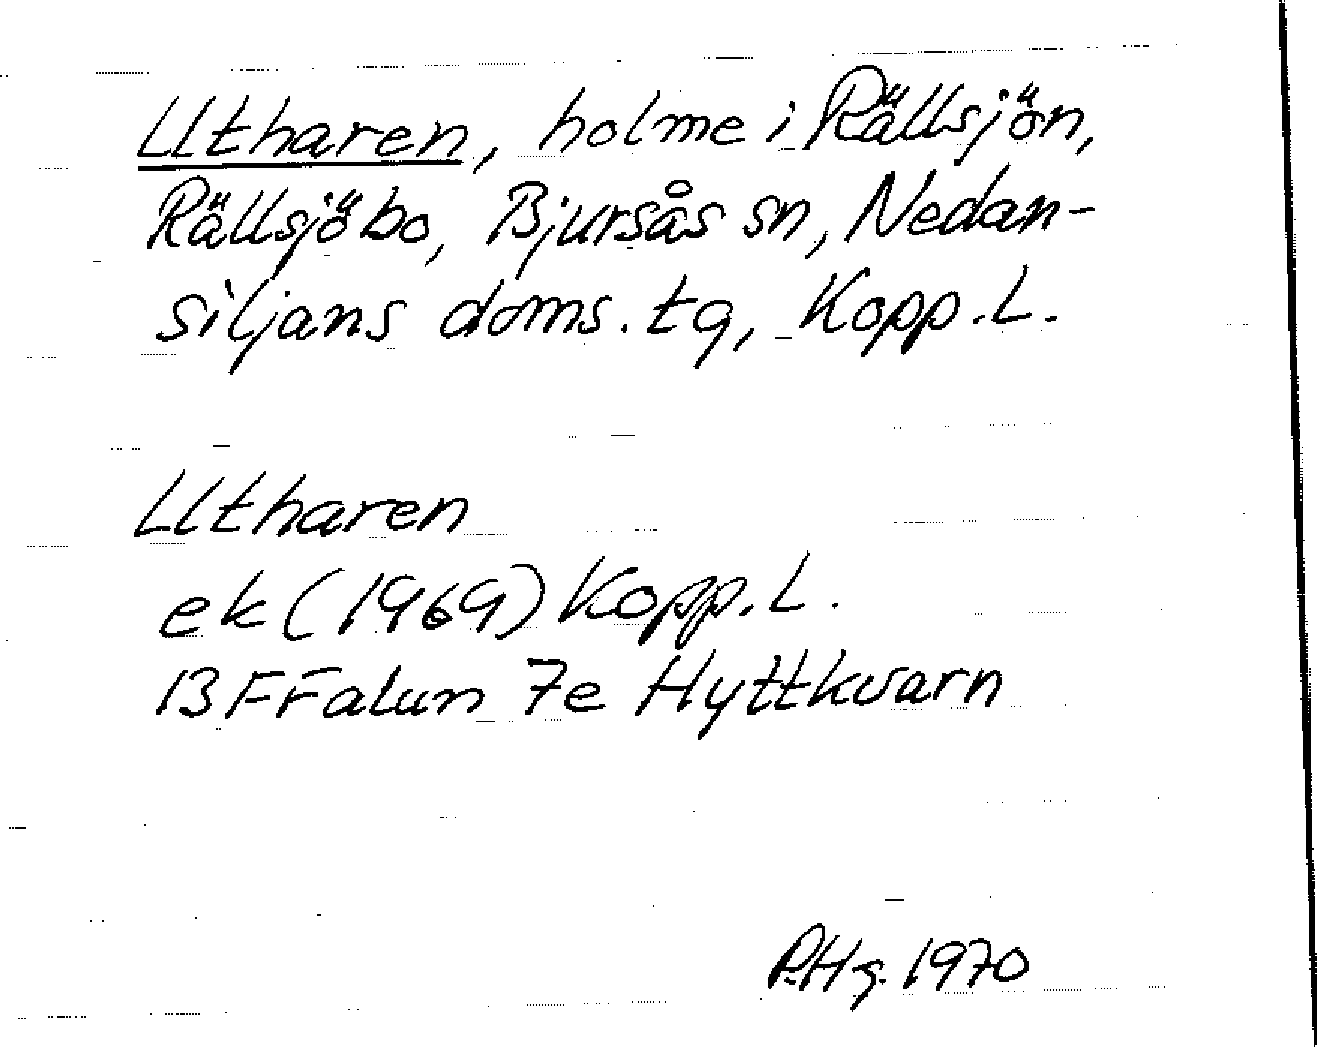 Utharen, holme i Rällsjön,
Rällsjöbo, Bjursås sn, Nedan-
siljans doms. tg, Kopp. L.
Utharen
ek (1969) Kopp. L.
13F Falun 7e Hyttkvarn
P.Hg. 1970